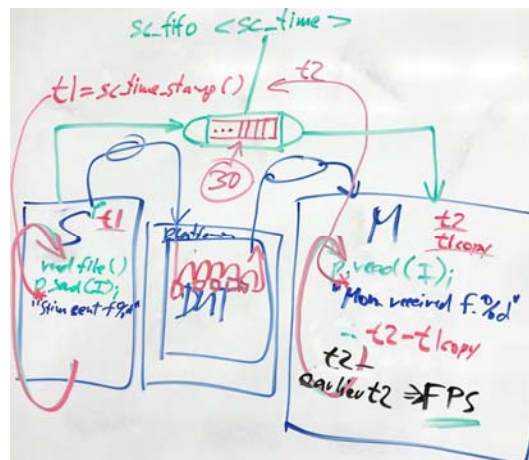 sc_fifo <sc_time>
t1=sc_time_stamp()
t2
30
S
t1
read file()
p.send(I);
"Stim sent f%d"
Platform
DUT
M
t2
t1copy
p.read(I);
"Mon received f.%d"
-- t2-t1copy
t2-
earlier t2 ⇒ FPS